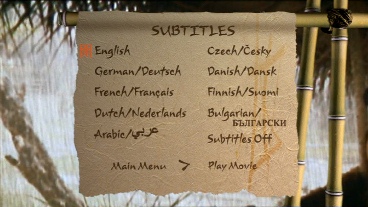 SUBTITLES
English
German/Deutsch
French/Français
Dutch/Nederlands
Arabic/عربي
Czech/Česky
Danish/Dansk
Finnish/Suomi
Bulgarian/
БЪЛГАРСКИ
Subtitles Off
Main Menu > Play Movie